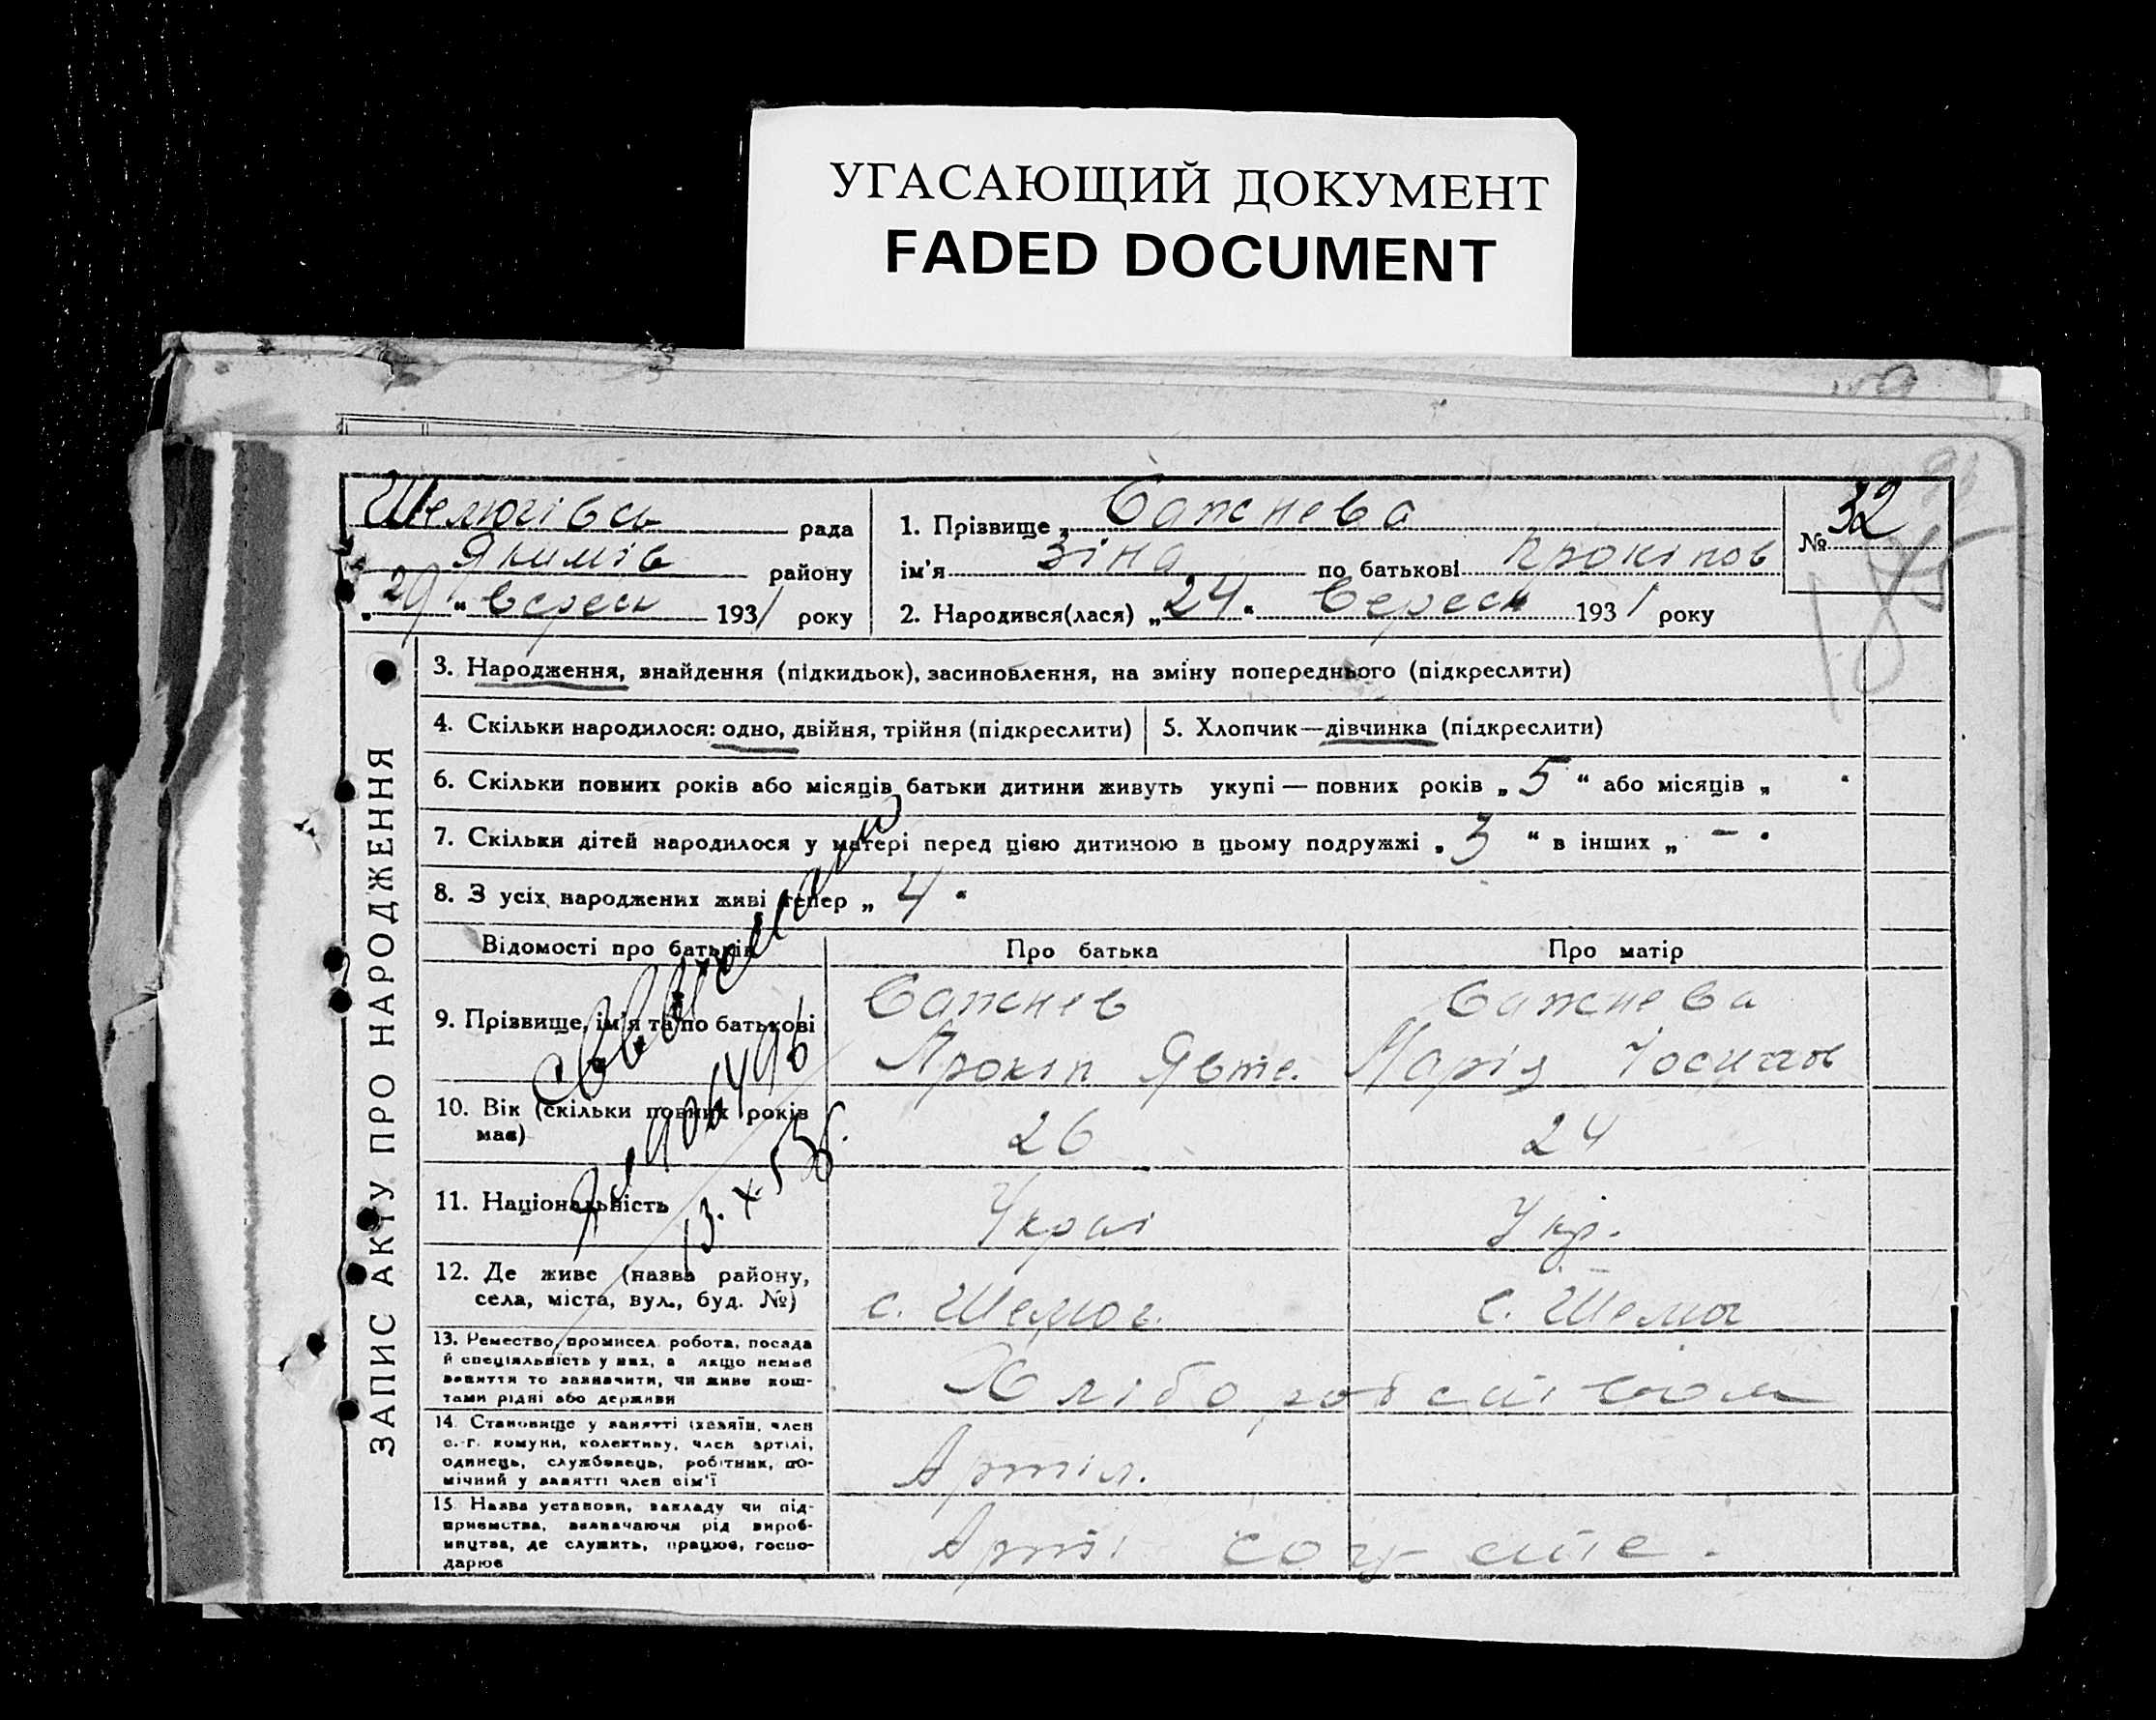 УГАСАЮЩИЙ ДОКУМЕНТ
FADED DOCUMENT
Шелюгівсь рада
Якимів району
„29“ Вересн 1931 року
1. Прізвище Сапснева
ім'я Зіна по батькові Прокіпов
2. Народився(лася) „24“ Вересн 1931 року
№ 32
ЗАПИС АКТУ ПРО НАРОДЖЕННЯ
3. Народження, знайдення (підкидьок), засиновлення, на зміну попереднього (підкреслити)
4. Скільки народилося: одно, двійня, трійня (підкреслити)
5. Хлопчик—дівчинка (підкреслити)
6. Скільки повних років або місяців батьки дитини живуть укупі — повних років „5“ або місяців „
7. Скільки дітей народилося у матері перед цією дитиною в цьому подружжі „3“ в інших „–“
8. З усіх народжених живі тепер „4“
Відомості про батьків
Про батька
Про матір
9. Прізвище, ім'я та по батькові
Сапснев
Прокіп Явте.
Сапснева
Марія Йосипов
10. Вік (скільки повних років
має)
26
24
11. Національність
Украї
Укр.
13.X.55г.
12. Де живе (назва району,
села, міста, вул., буд. №)
с. Шелюг.
с. Шелюг
13. Ремество, промисел, робота, посада
й спеціяльність у них, а якщо немає
заняття то зазначити, чи живе кош-
тами рідні або держави
14. Становище у занятті (хазяїн, член
с.-г. комуни, колективу, член артілі,
одинець, службовець, робітник, по-
мічний у занятті член сім'ї
Артіл.
15. Назва установи, закладу чи під-
приємства, зазначаючи рід вироб-
ництва, де служить, працює, госпо-
дарює